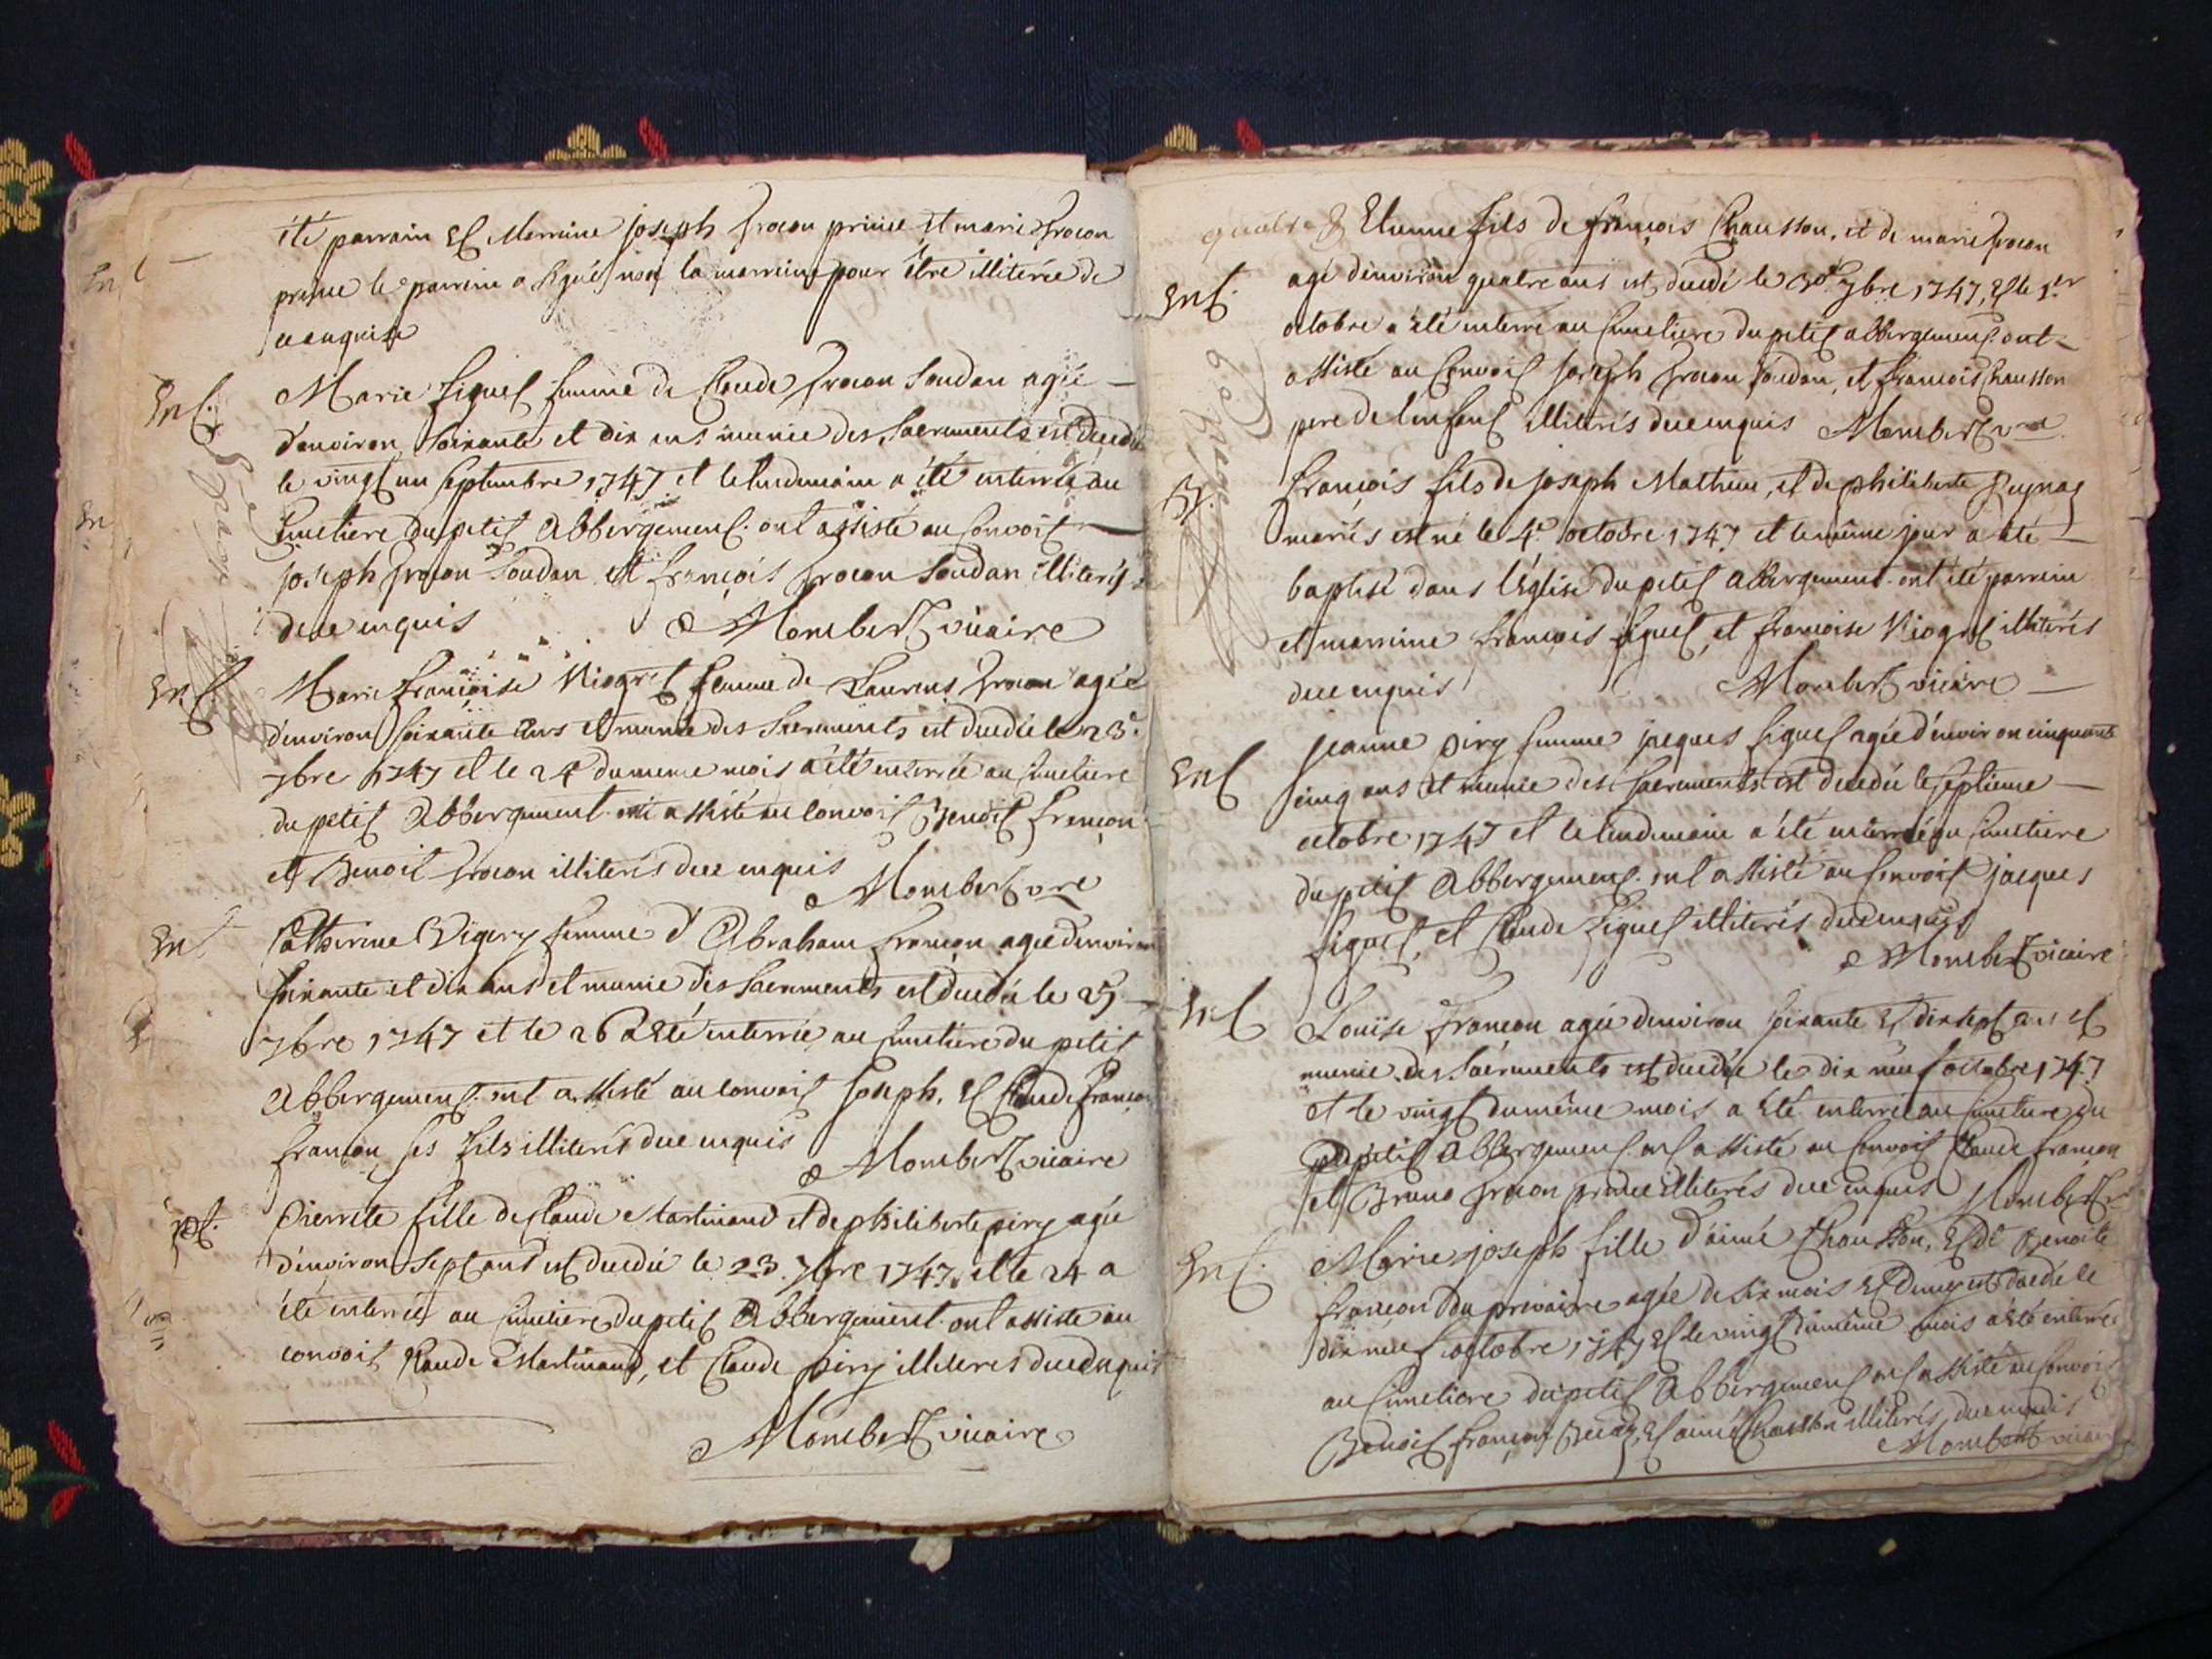 été parrain et Marrine joseph frocon prince et marie frocon
prince le parrein a signé non la marrine pour être illiterée de
ce enquise
Ent. Marie Figuet femme de Claude frocon Soudan agée
d'environ soixante et dix ans munie des Sacrements est decedée
le vingt un septembre 1747 et le lendemain a été enterrée au
Cimetiere du petit Abbergement. ont assisté au Convoit
joseph frocon Soudan et françois frocon Soudan illiterés
de ce enquis Mombert vicaire
Ent. Marie françoise Niogret femme de Laurens frocon agée
d'environ soixante ans et munie des Sacrements est decedée le 23e
7bre 1747 et le 24 du meme mois a été enterrée au Cimetiere
du petit Abbergement. ont assisté au Convoit Benoit françon
et Benoit frocon illiterés de ce enquis Mombert vre
Ent. Catherine Vigery femme d'Abraham françon agée d'environ
soixante et dix ans et munie des Sacrements est decedée le 25
7bre 1747 et le 26 a Eté enterrée au Cimetiere du petit
Abbergement. ont assisté au Convoit joseph, et Claude françon
françon ses fils illiterés de ce enquis Mombert vicaire
Ent. Pierrete fille de Claude Martinand et de philiberte piry agée
d'environ sept ans est decedée le 23. 7bre 1747. et le 24 a
été enterrée au Cimetiere du petit Abbergement. ont assisté au
convoit Claude Martinand, et Claude piry illiterés de ce enquis
Mombert vicaire
quatre Etienne fils de françois Chausson, et de marie frocon
Ent. agé d'environ quatre ans est decedé le 30e 7bre 1747, et le 1er
octobre a été enterré au Cimetiere du petit abbergement. ont
assisté au Convoit joseph frocon soudan, et françois Chausson
pere de l'enfant illiterés de ce enquis Mombert vre
B. françois fils de joseph Mathieu, et de philiberte
mariés est né le 4e octobre 1747 et le même jour a été
baptisé dans l'Eglise du petit Abbergement. ont été parrein
et marrine françois figuet, et françoise Niogret illiterés
de ce enquis Mombert vicaire
Ent Jeanne piry femme jacques figuet agée d'environ cinquante
cinq ans et munie des Sacrements est decedée le septieme
octobre 1747 et le lendemain a été enterrée au Cimetiere
du petit Abbergement. ont assisté au Convoit jacques
figuet, et Claude figuet illiterés de ce enquis
Mombert vicaire
Ent Louise françon agée d'environ soixante et dix sept ans et
munie des Sacrements est decedée le dix neuf octobre 1747
et le vingt du même mois a Eté enterrée au Cimetiere du
petit Abbergement. ont assisté au Convoit Claude françon
et Bruno frocon prince illiterés de ce enquis Mombert vre
Ent. Marie joseph fille d'aimé Chausson, et de Benoite
françon agée de six mois et demy est decedée le
dix neuf octobre 1747 et le vingt du même mois a Eté enterrée
au Cimetiere du petit Abbergement ont assisté au Convoit
Benoit françon et aimé Chausson illiterés de ce enquis
Mombert vicaire